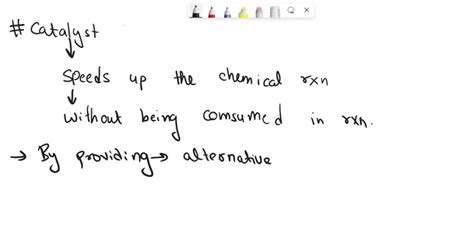 # Catalyst
↓
speeds up the chemical rxn
↓
without being comsumed in rxn.
→ By providing → alternative